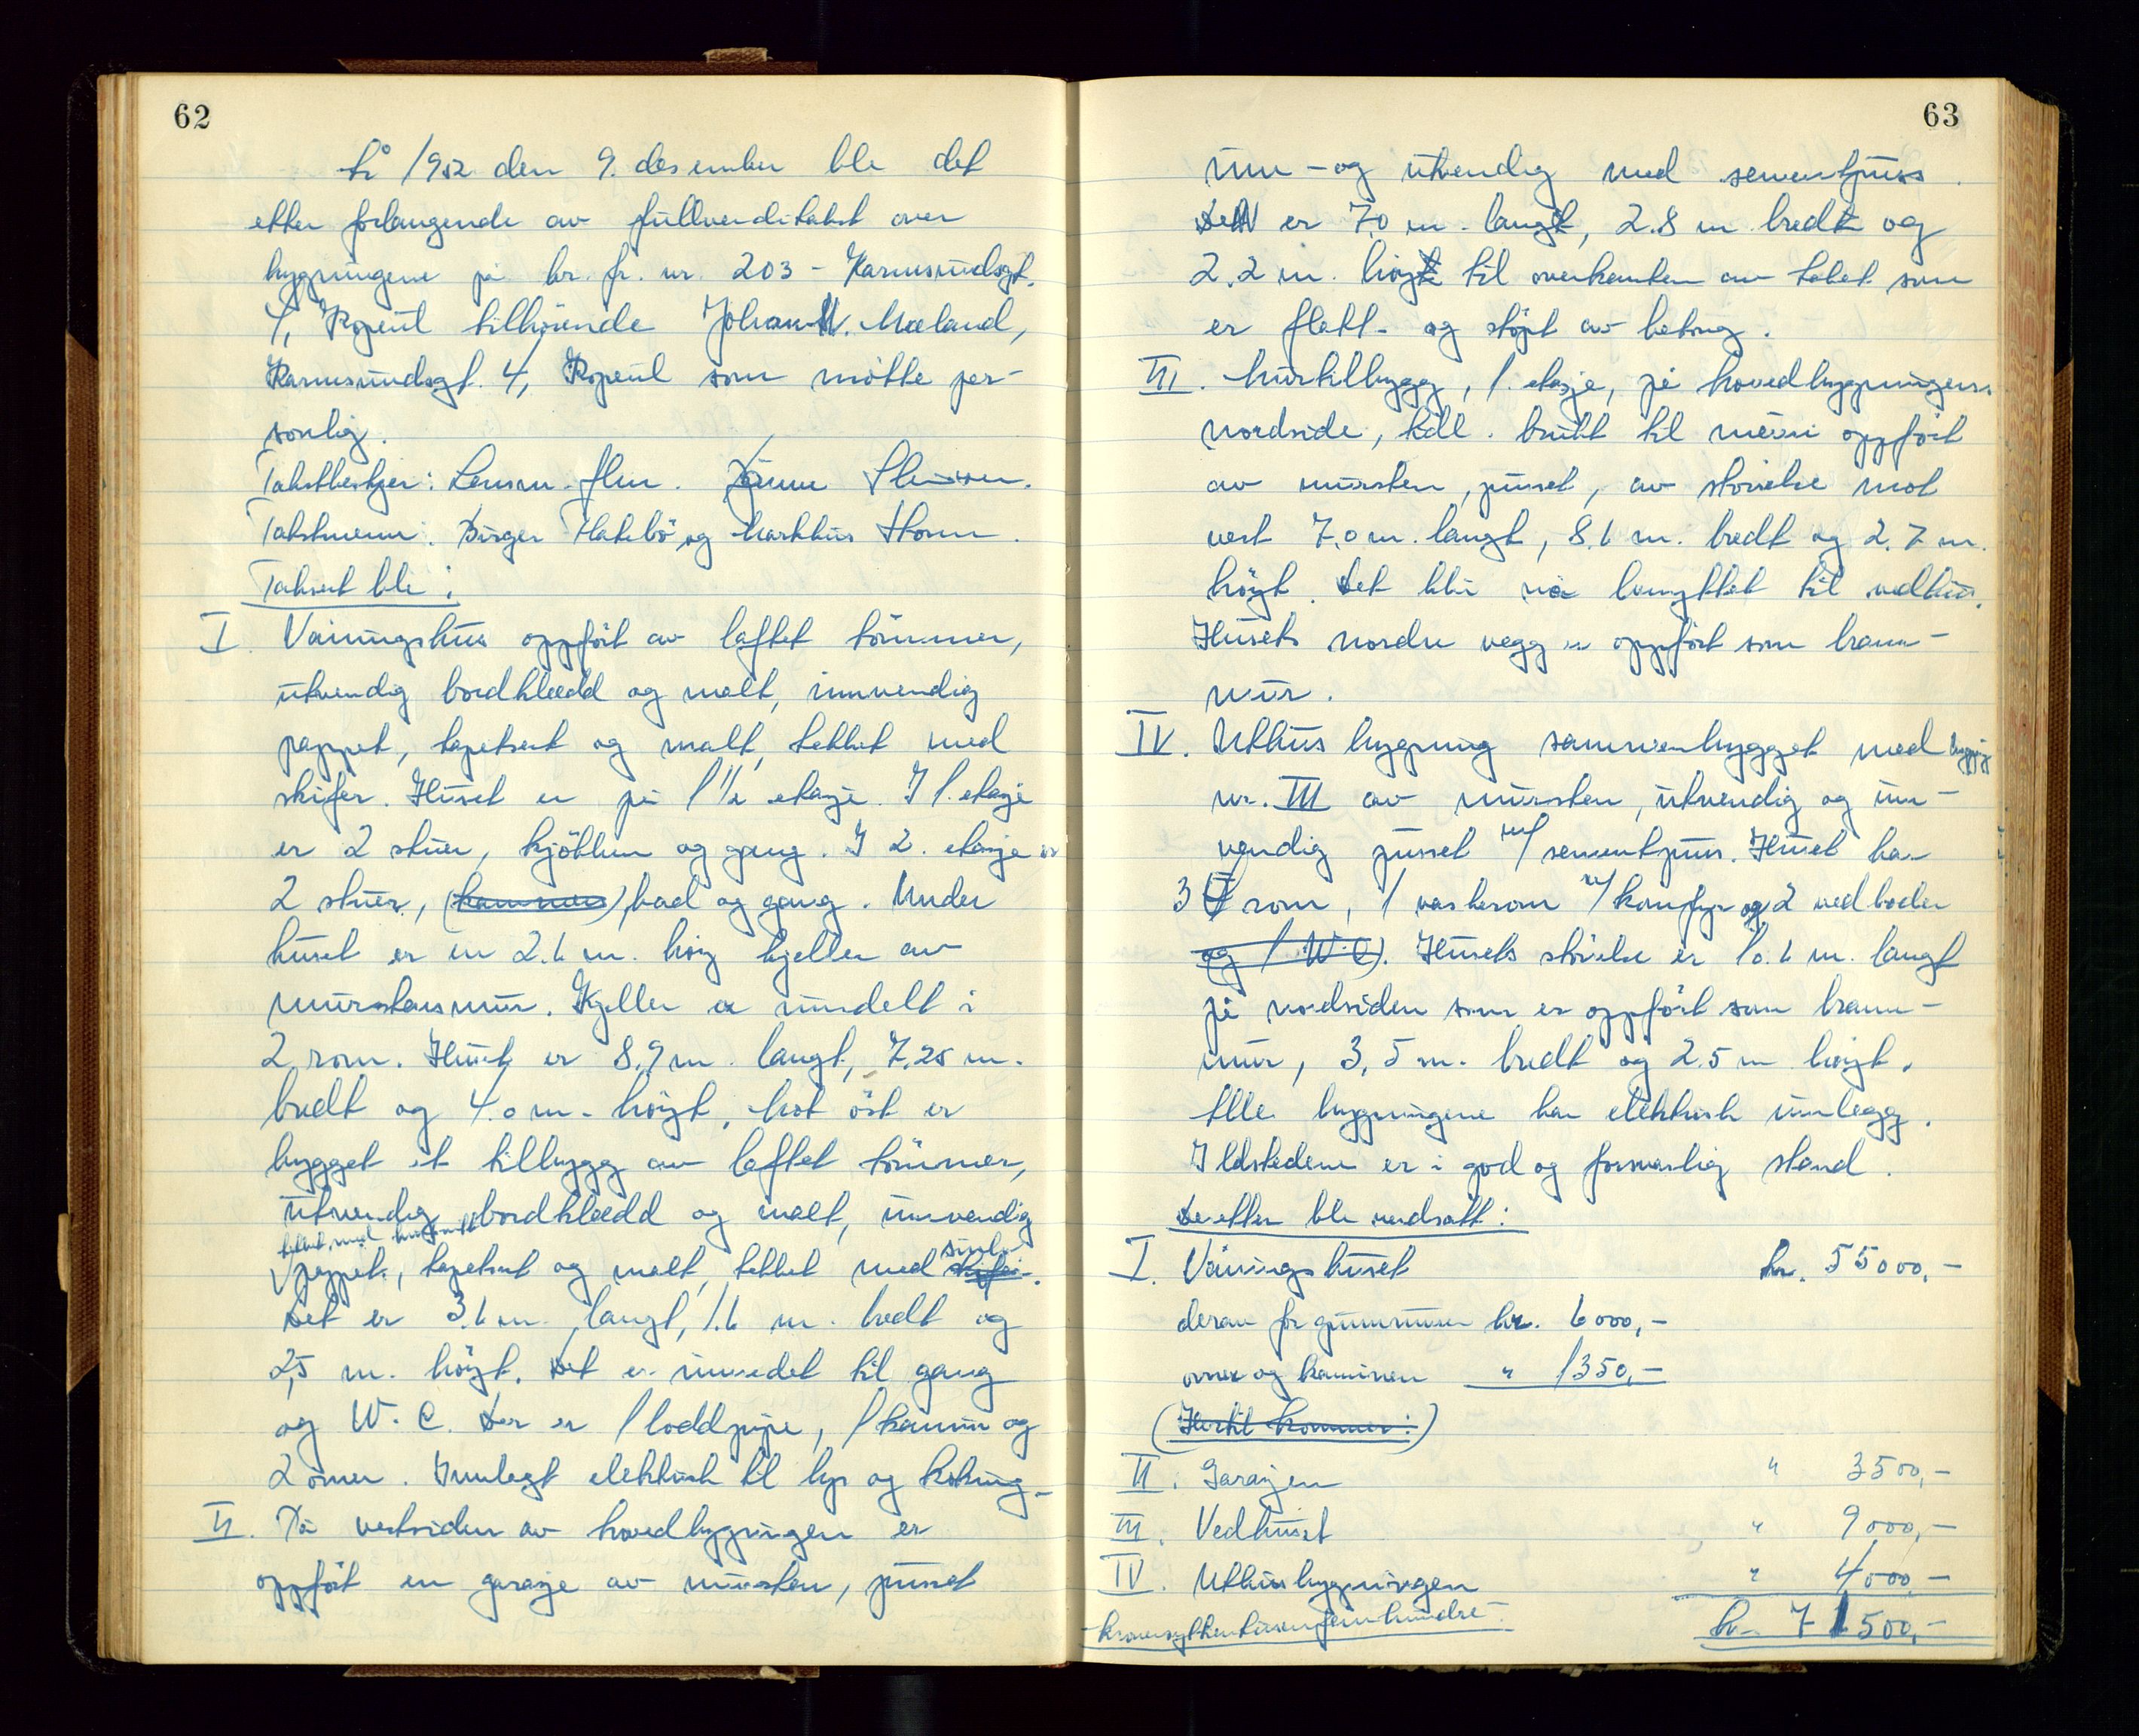 62
År 1952 den 9. desember ble det
etter forlangende av fullverditakst over
bygningene på br. fr. nr. 203 - Karmsundsgt.
4, Kopervik tilhørende Johan N. Mæland,
Karmsundsgt. 4, Kopervik som møtte per-
sonlig.
Takstbestyrer: Lensm. flm.
Takstmenn: Birger Flatebö og Markhus Thorsen.
Taksert ble:
I. Våningshus oppfört av laftet tömmer,
utvendig bordklædd og malt, innvendig
pappet, tapetsert og malt, tekket med
skifer. Huset er på 1 1/2 etasje. I 1. etasje
er 2 stuer, kjökken og gang. I 2. etasje er
2 stuer, (kammers), bad og gang. Under
huset er en 2.6 m. höy kjeller av
murstensmur. Kjeller er inndelt i
2 rom. Huset er 8.9 m. langt, 7.25 m.
bredt og 4.0 m. höyt, Mot öst er
bygget et tilbygg av laftet tömmer,
utvendig bordklædd og malt, innvendig
pappet, tapetsert og malt, tekket med skifer. sink
Det er 3.6 m. langt, 1.6 m. bredt og
2,5 m. höyt. Det er innredet til gang
og W.C. Der er 1 loddpipe, 1 kamin og
2 ovner. Innlagt elektrisk til lys og koking.
II. På vestsiden av hovedbygningen er
oppfört en garasje av mursten, pusset
63
inn- og utvendig med sementpuss.
Den er 7.0 m. langt, 2.8 m. bredt og
2.2 m. höyt til overkanten av taket som
er flatt - og stöpt av betong.
III. Murtilbygg, 1. etasje, på hovedbygningens
nordside, tidl. brukt til oppfört
av mursten, pusset, av störrelse mot
vest 7.0 m. langt, 8.6 m. bredt og 2.7 m.
höyt. Det blir nå benyttet til vedhus.
Husets nordre vegg er oppfört som brann-
mur.
IV. Uthusbygning sammenbygget med bygning
nr. III av mursten, utvendig og inn-
vendig pusset m/ sementpuss. Huset har
3 rom, 1 vaskerom m/ komfyr og 2 vedboder
og 1 W.C). Husets störrelse er 10.6 m. langt
på nordsiden som er oppfört som brann-
mur, 3,5 m. bredt og 2.5 m höyt.
Alle bygningene har elektrisk innlegg.
Ildstedene er i god og forsvarlig stand.
Deretter ble verdsatt:
I. Våningshuset kr. 55000,-
derav for grunnmuren kr. 6000,-
ovner og kaminen " 1350,-
(Hertil kommer:)
II. Garasjen " 3500,-
III. Vedhuset " 9000,-
IV. Uthusbygningen " 4000,-
kr. 71500,-